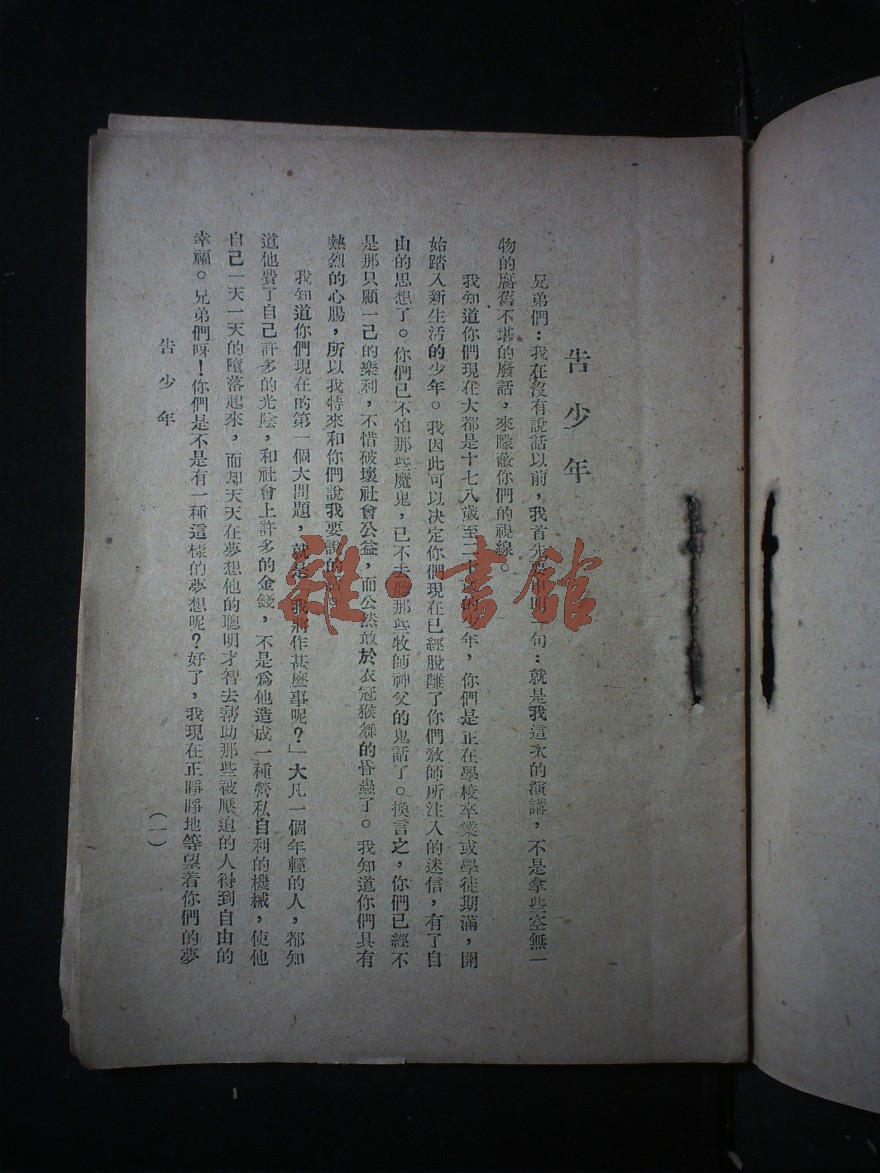 告少年
兄弟們：我在沒有說話以前，我首先要聲明一句：就是我這次的演講，不是拿些空無一
物的腐舊不堪的廢話，來矇蔽你們的視線。
我知道你們現在大都是十七八歲至二十歲的少年，你們是正在學校卒業或學徒期滿，開
始踏入新生活的少年。我因此可以決定你們現在已經脫離了你們教師所注入的迷信，有了自
由的思想了。你們已不怕那些魔鬼，已不去聽那些牧師神父的鬼話了。換言之，你們已經不
是那只顧一己的樂利，不惜破壞社會公益，而公然敢於衣冠猴舞的昏蟲了。我知道你們具有
熱烈的心腸，所以我特來和你們說我要說的
我知道你們現在的第一個大問題，就是「我將作甚麼事呢？」大凡一個年輕的人，都知
道他費了自己許多的光陰，和社會上許多的金錢，不是爲他造成一種營私自利的機械，使他
自己一天一天的墮落起來，而却天天在夢想他的聰明才智去幫助那些被壓迫的人得到自由的
幸福。兄弟們呀！你們是不是有一種這樣的夢想呢？好了，我現在正睜睜地等望着你們的夢
告少年
（一）
雜·書館